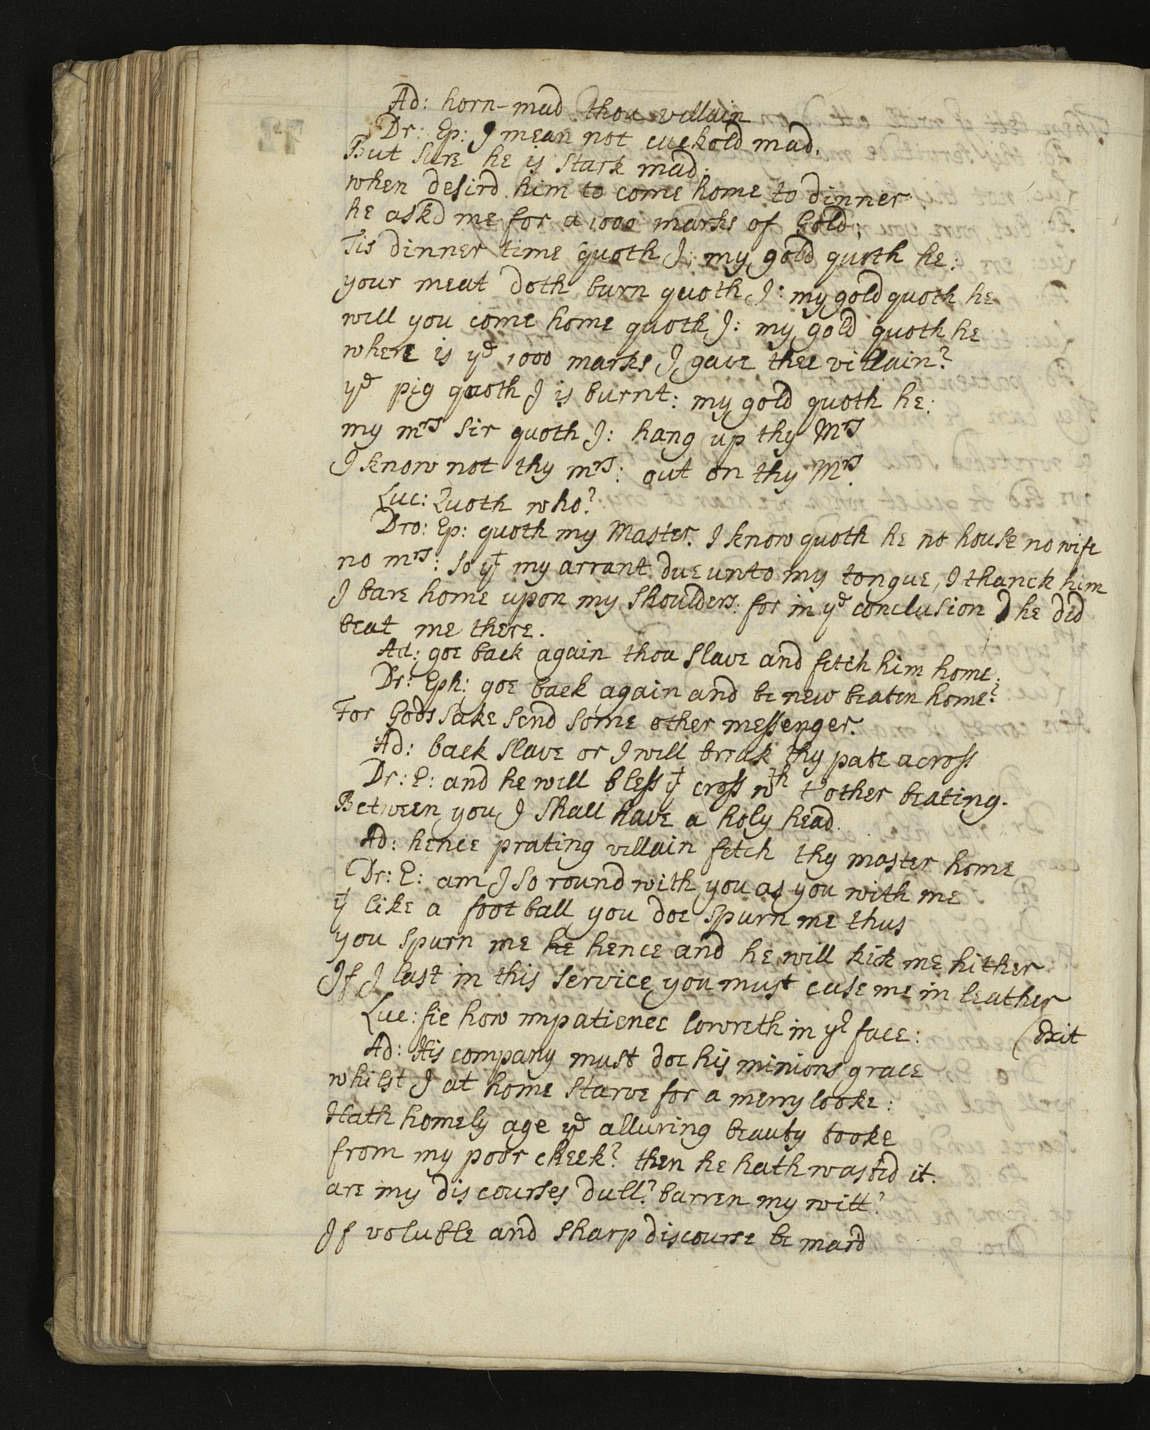 Ad: horn-mad thou villain
Dr: Ep: I mean not cuckold mad.
But sure he is stark mad.
when desird him to come home to dinner
he askd me for a 1000 marks of Gold;
Tis dinner time quoth I: my gold quoth he.
your meat doth burn quoth I: my gold quoth he
will you come home quoth I: my gold quoth he
where is yᵉ 1000 marks I gave thee villain?
yᵉ pig quoth I is burnt: my gold quoth he:
my mʳˢ sir quoth I: hang up thy Mʳˢ
I know not thy mʳˢ: out on thy Mʳˢ.
Luc: Quoth who?
Dro: Ep: quoth my Master. I know quoth he no house no wife
no mʳˢ: so yᵗ my arrant due unto my tongue, I thanck him
I bare home upon my shoulders: for in yᵉ conclusion he did
beat me there.
Ad: goe back again thou slave and fetch him home.
Dr: Eph: goe back again and be new beaten home?
For Gods sake send some other messenger.
Ad: back slave or I will break thy pate across
Dr: E: and he will bless yᵗ cross wᵗʰ t'other beating.
Between you I shall have a holy head.
Ad: hence prating villain fetch thy master home
Dr: E: am I so round with you as you with me
yᵗ like a foot ball you doe spurn me thus
you spurn me he hence and he will kick me hither
If I last in this service you must case me in leather
Luc: fie how impatience lowreth in yʳ face: (Exit
Ad: His company must doe his minions grace
whilst I at home starve for a merry looke:
Hath homely age yᵉ alluring beauty tooke
from my poor cheek? then he hath wasted it.
are my discourses dull? barren my witt?
If voluble and sharp discourse be mard